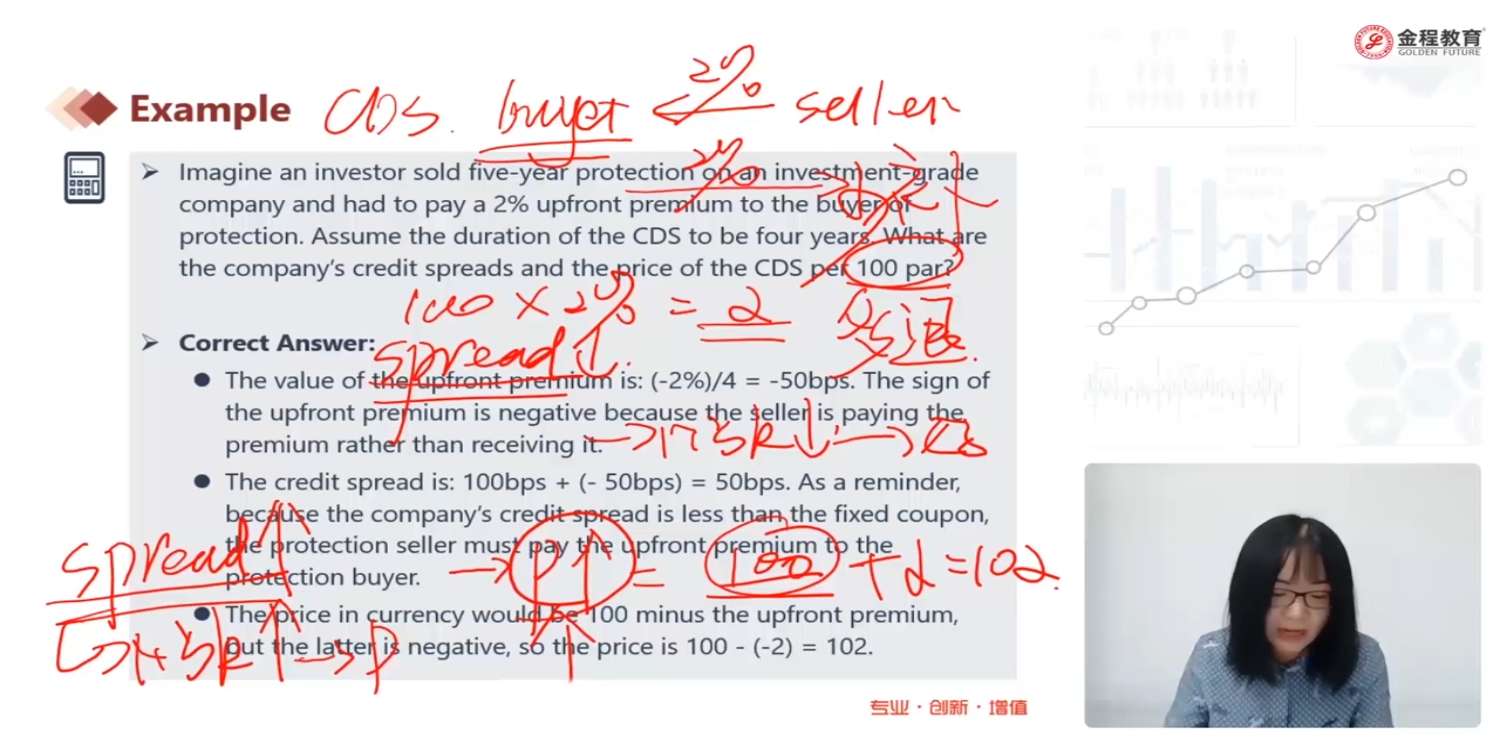 金程教育
GOLDEN FUTURE
Example
CDS. buyer 2% seller
2%
Imagine an investor sold five-year protection on an investment-grade
company and had to pay a 2% upfront premium to the buyer of
protection. Assume the duration of the CDS to be four years. What are
the company's credit spreads and the price of the CDS per 100 par?
100 × 2% = 2 多退.
Correct Answer:
spread↓.
The value of the upfront premium is: (-2%)/4 = -50bps. The sign of
the upfront premium is negative because the seller is paying the
premium rather than receiving it.
The credit spread is: 100bps + (- 50bps) = 50bps. As a reminder,
because the company's credit spread is less than the fixed coupon,
the protection seller must pay the upfront premium to the
protection buyer.
spread↑
→ P↑ = 100 + 2 = 102.
The price in currency would be 100 minus the upfront premium,
but the latter is negative, so the price is 100 - (-2) = 102.
专业·创新·增值